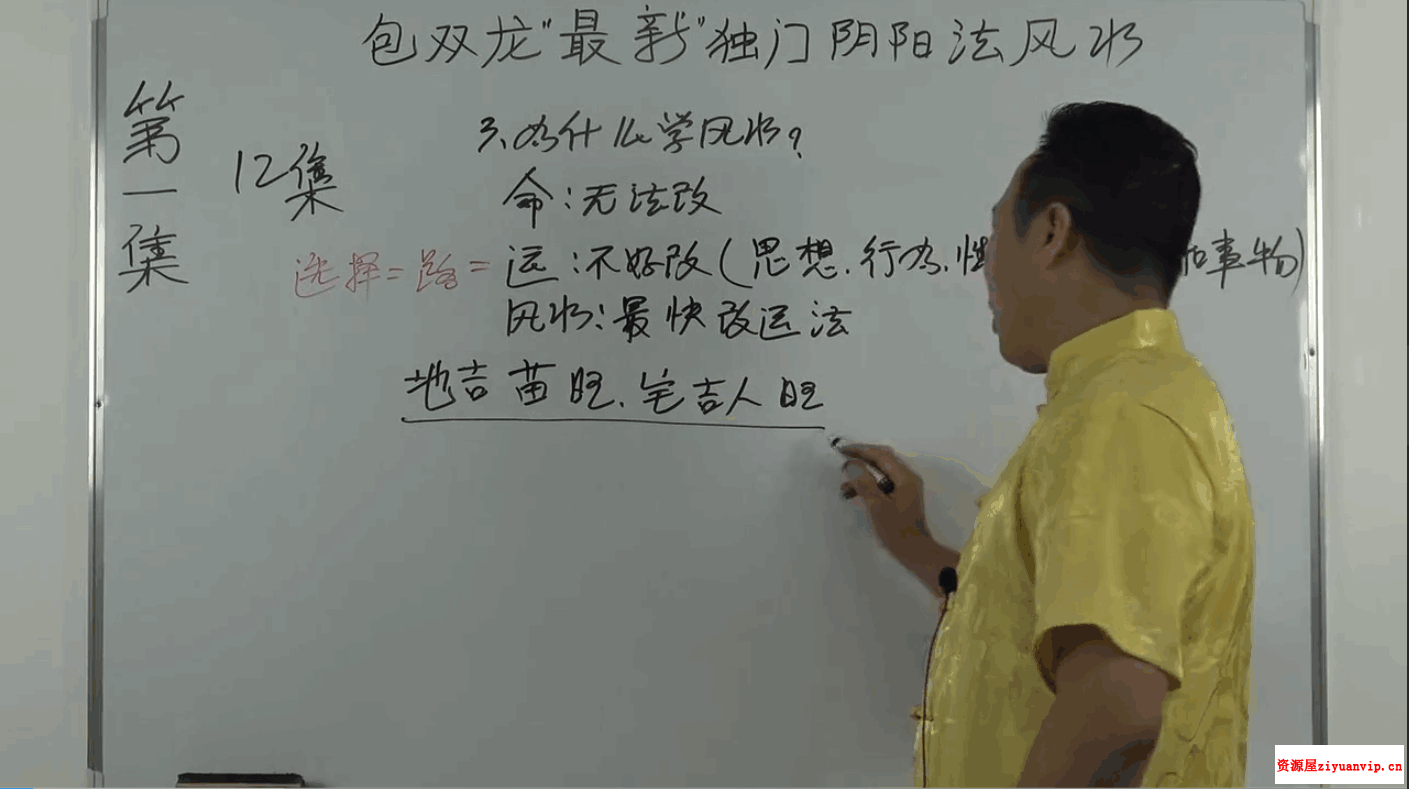 包双龙"最新"独门阴阳法风水
第一集
12集
3、为什么学风水?
命:无法改
选择=路=运:不好改(思想.行为.性 事物)
风水:最快改运法
地吉苗旺.宅吉人旺
资源屋ziyuanvip.cn